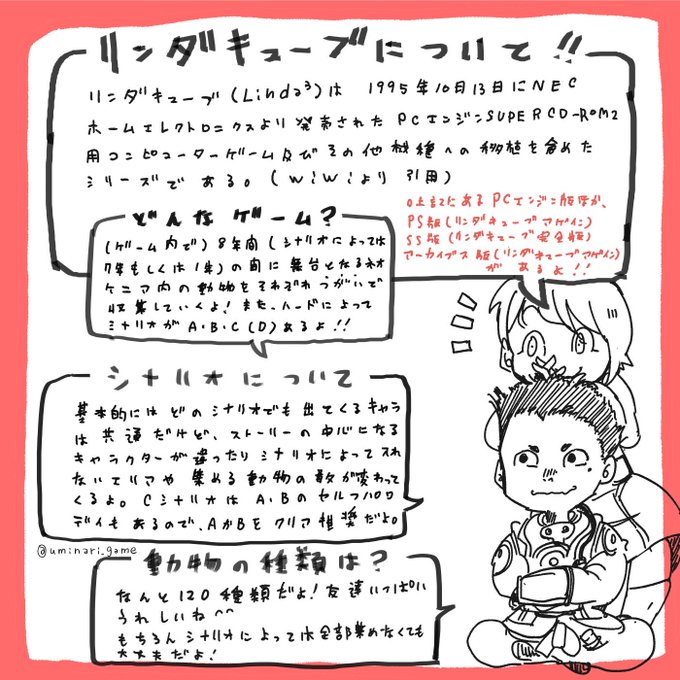 リンダキューブについて!!
リンダキューブ(Linda³)は 1995年10月13日にNEC
ホームエレクトロニクスより発売されたPCエンジンSUPER CD-ROM2
用コンピューターゲーム及びその他機種への移植を含めた
シリーズである。(wiwiより引用)
○上記にあるPCエンジン版ほか、
PS版(リンダキューブアゲイン)
SS版(リンダキューブ完全版)
アーカイブス版(リンダキューブアゲイン)
があるよ!!
どんなゲーム?
(ゲーム内で)8年間(シナリオによっては
7年もしくは1年)の間に舞台となるネオ
ケニア内の動物をそれぞれつがいで
収集していくよ!また、ハードによって
シナリオがA・B・C(D)あるよ!!
シナリオについて
基本的にはどのシナリオでも出てくるキャラ
は共通だけど、ストーリーの中心になる
キャラクターが違ったりシナリオによって入れ
ないエリアや集める動物の数が変わって
くるよ。CシナリオはA・Bのセルフパロ
ディもあるので、AかBをクリア推奨だよ。
@uminari_game
動物の種類は?
なんと120種類だよ!友達いっぱい
うれしいね^^
もちろんシナリオによっては全部集めなくても
大丈夫だよ!